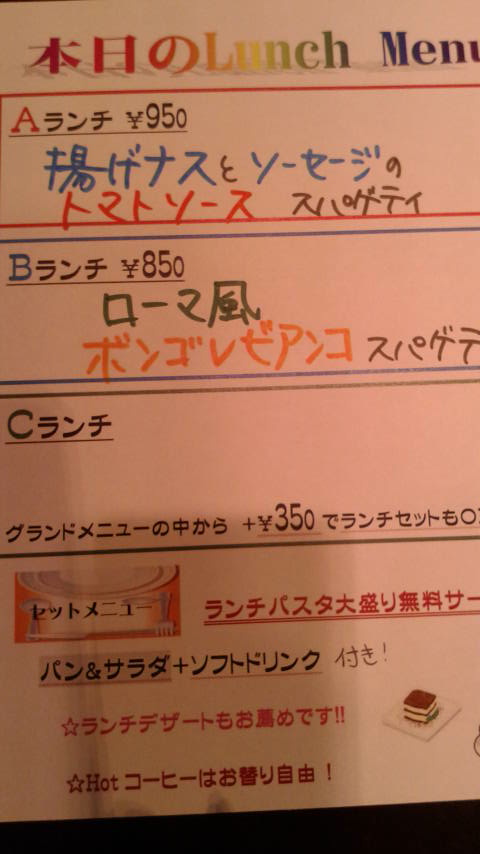 本日のLunch Menu
Aランチ ¥950
揚げナスとソーセージの
トマトソース スパゲティ
Bランチ ¥850
ローマ風
ボンゴレビアンコ スパゲテ
Cランチ
グランドメニューの中から +¥350でランチセットも
セットメニュー
ランチパスタ大盛り無料サー
パン&サラダ+ソフトドリンク 付き!
☆ランチデザートもお薦めです!!
☆Hot コーヒーはお替り自由!